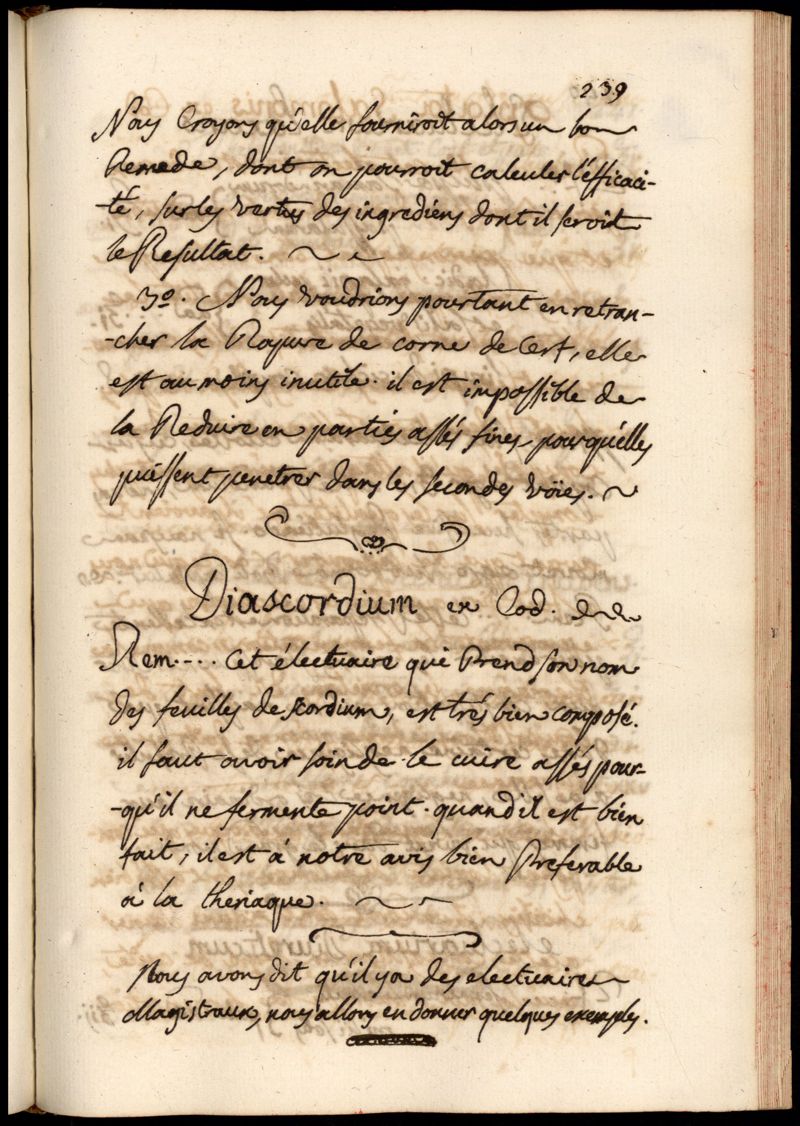 239
Nous Croyons qu'elle fourniroit alors un bon
Remede, dont on pourroit calculer l'efficaci-
-té, sur les vertus des ingrediens dont il seroit
le Resultat.
3º. Nous voudrions pourtant en retran-
-cher la Rapure de corne de Cerf, elle
est au moins inutile. il est impossible de
la Reduire en parties assés fines pour qu'elles
puissent penetrer dans les secondes voïes.
Diascordium ex Cod.
Rem.... Cet électuaire qui Prend son nom
des feuilles de scordium, est trés bien composé.
il faut avoir soin de le cuire assés pour-
-qu'il ne fermente point. quand il est bien
fait, il est à notre avis bien Preferable
à la theriaque.
Nous avons dit qu'il y a des electuaires
Magistraux, nous allons en donner quelques exemples.